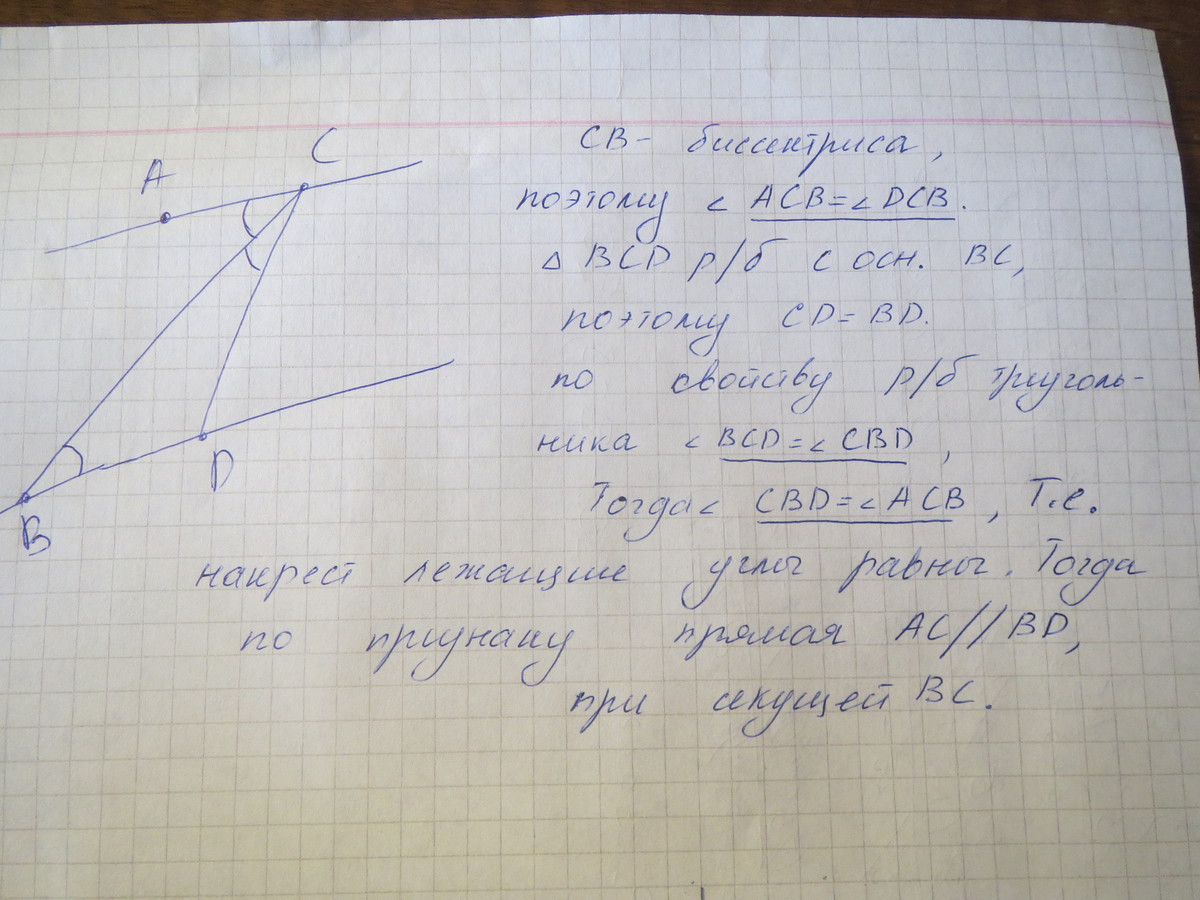 C
A
D
B
CB - биссектриса,
поэтому < ACB = < DCB.
Δ BCD р/б с осн. BC,
поэтому CD = BD.
по свойству р/б триуголь-
ника < BCD = < CBD,
Тогда < CBD = < ACB, т.е.
накрест лежащие углы равны. Тогда
по признаку прямая AC//BD,
при секущей BC.